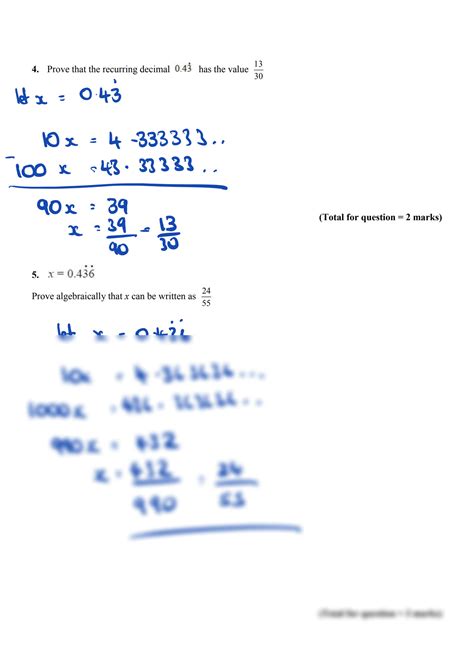 4. Prove that the recurring decimal 0.43̇ has the value 13/30
let x = 0.43̇
10x = 4.333333..
- 100x = 43.33333..
90x = 39
x = 39/90 = 13/30
(Total for question = 2 marks)
5. x = 0.43̇6̇
Prove algebraically that x can be written as 24/55
let x = 0.43̇6̇
10x = 4.363636...
1000x = 436.363636...
990x = 432
x = 432/990 = 24/55